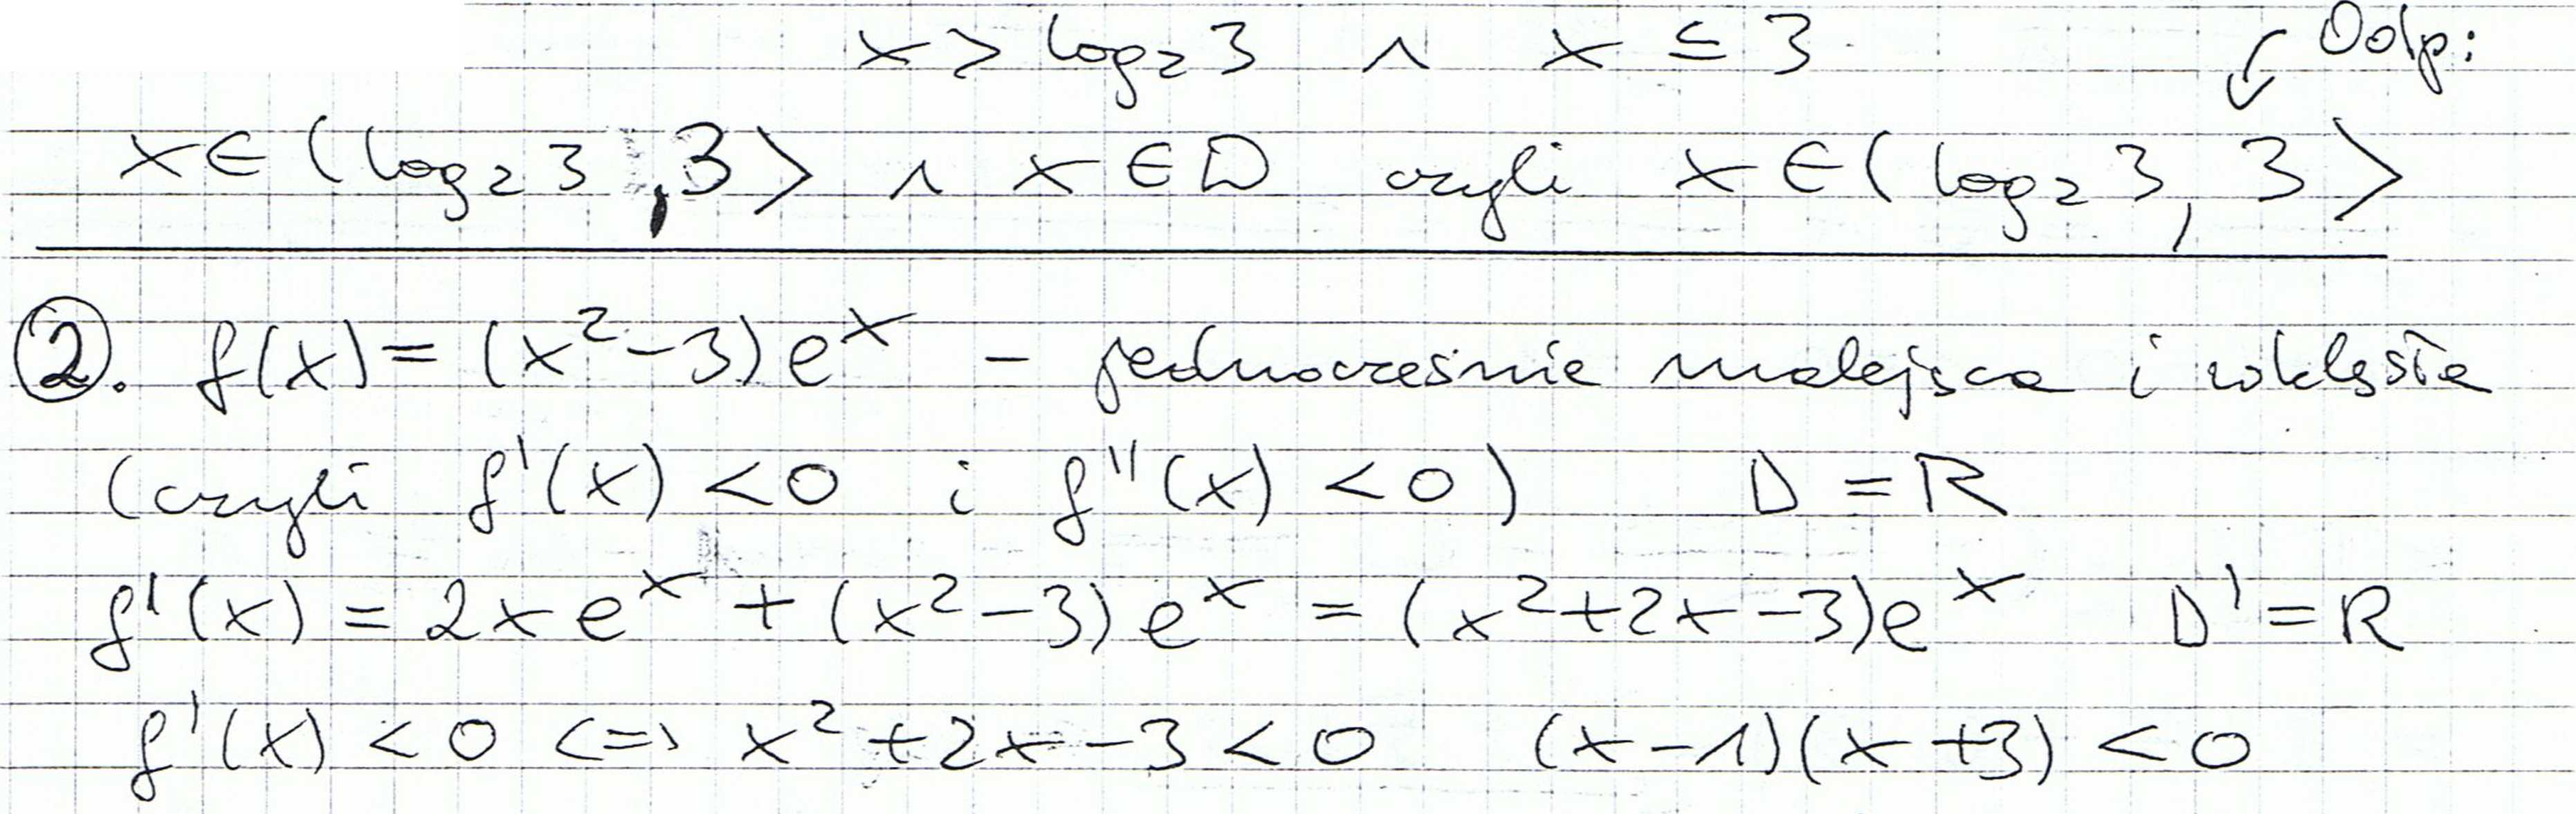 x > log₂3 ∧ x ≤ 3 Odp:
x∈(log₂3, 3> ∧ x∈D czyli x∈(log₂3, 3>
②. f(x) = (x²-3)eˣ - jednocześnie malejąca i wklęsła
(czyli f'(x) < 0 i f''(x) < 0) D = R
f'(x) = 2xeˣ + (x²-3)eˣ = (x²+2x-3)eˣ D' = R
f'(x) < 0 <=> x²+2x-3 < 0 (x-1)(x+3) < 0